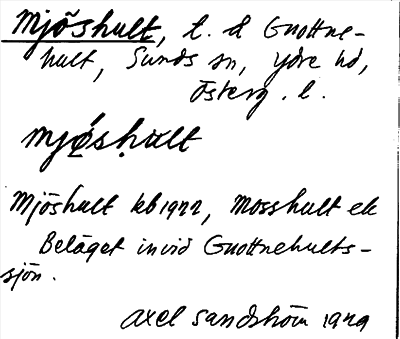 Mjöshult, t. d Gnottne-
hult, Sunds sn, Ydre hd,
Österg. l.
mjǿ́sḥult
Mjöshult kb 1922, Mosshult ek
Beläget invid Gnottnehults-
sjön.
Axel Sandström 1929